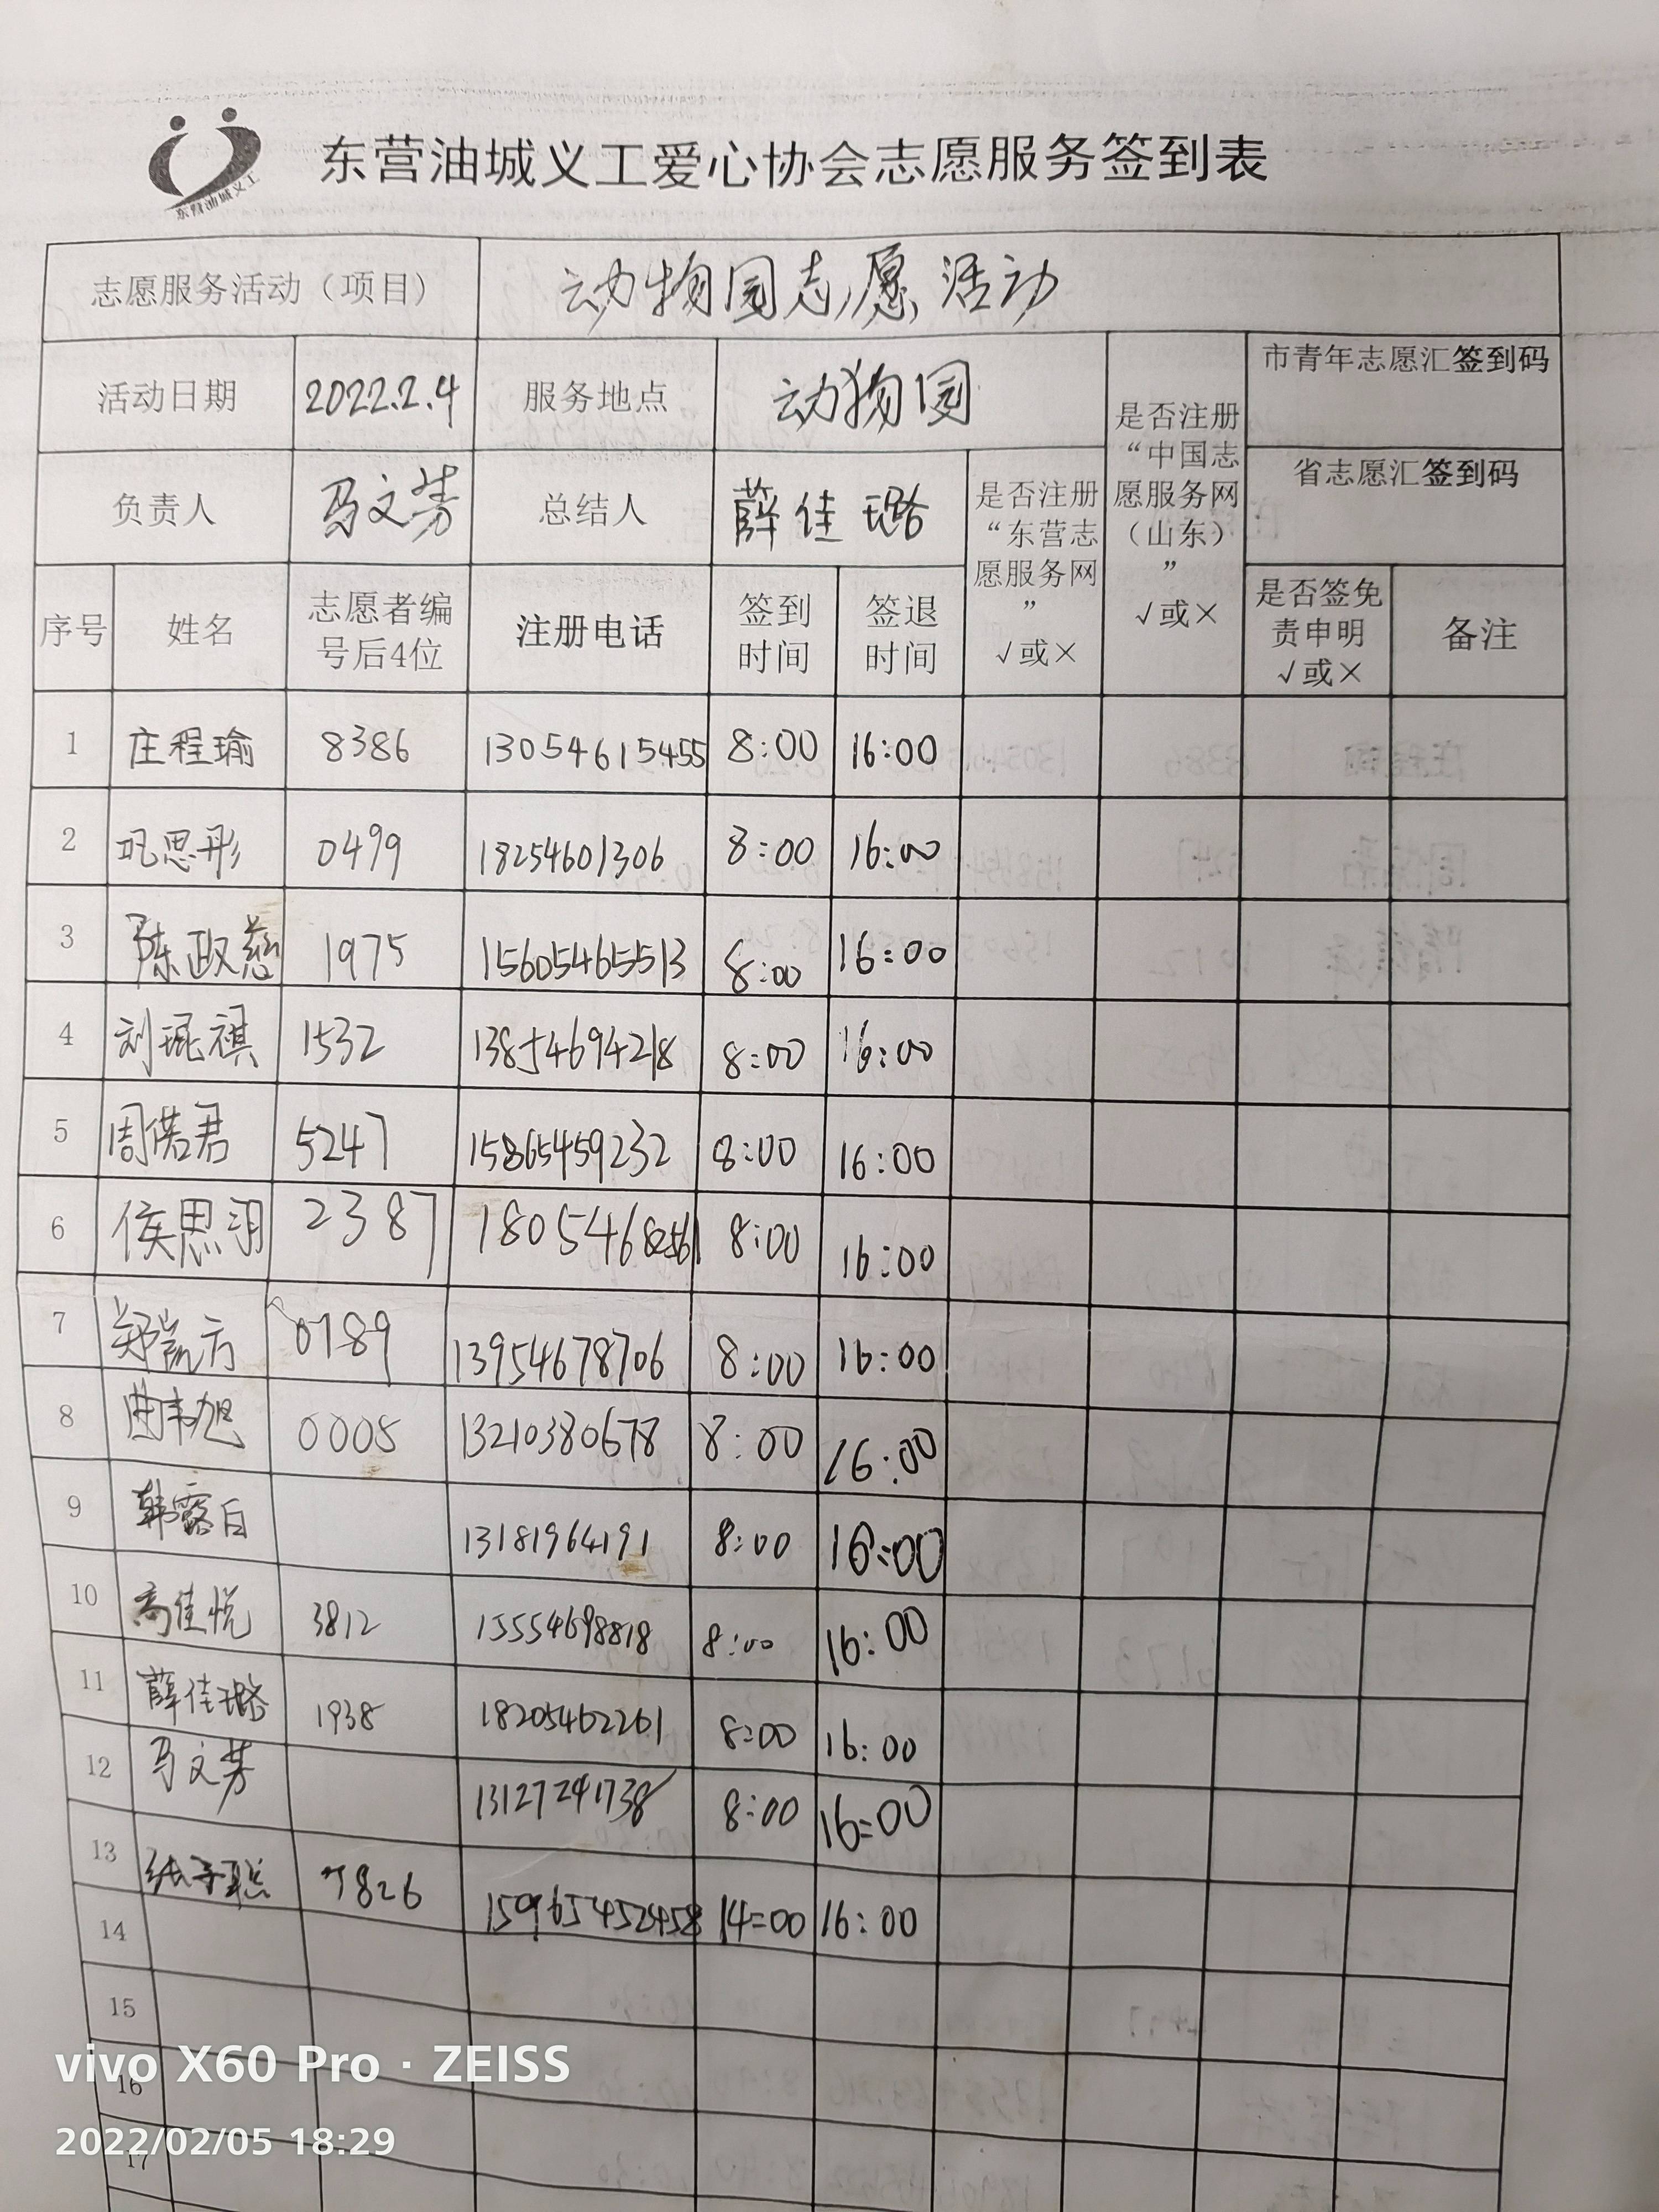 东营油城义工
东营油城义工爱心协会志愿服务签到表
志愿服务活动（项目） 动物园志愿活动
活动日期 2022.2.4 服务地点 动物园 市青年志愿汇签到码
负责人 马文芳 总结人 薛佳璐 省志愿汇签到码
是否注册
“东营志
愿服务网
”
√或×
是否注册
“中国志
愿服务网
（山东）
”
√或×
序号 姓名 志愿者编号后4位 注册电话 签到时间 签退时间 是否签免责申明√或× 备注
1 庄程瑜 8386 13054615455 8:00 16:00
2 巩思彤 0499 18254601306 8:00 16:00
3 陈政慈 1975 15605465513 8:00 16:00
4 刘琨祺 1532 13854694218 8:00 16:00
5 周偌君 5247 15865459232 8:00 16:00
6 侯思羽 2387 18054682561 8:00 16:00
7 郑凯方 0789 13954678706 8:00 16:00
8 曲韦旭 0005 13210380678 8:00 16:00
9 韩露白 13181964191 8:00 16:00
10 高佳悦 3812 15554698818 8:00 16:00
11 薛佳璐 1938 18205462261 8:00 16:00
12 马文芳 13127241738 8:00 16:00
13 张子聪 7826 15965452458 14:00 16:00
14
15
16
17
vivo X60 Pro · ZEISS
2022/02/05 18:29